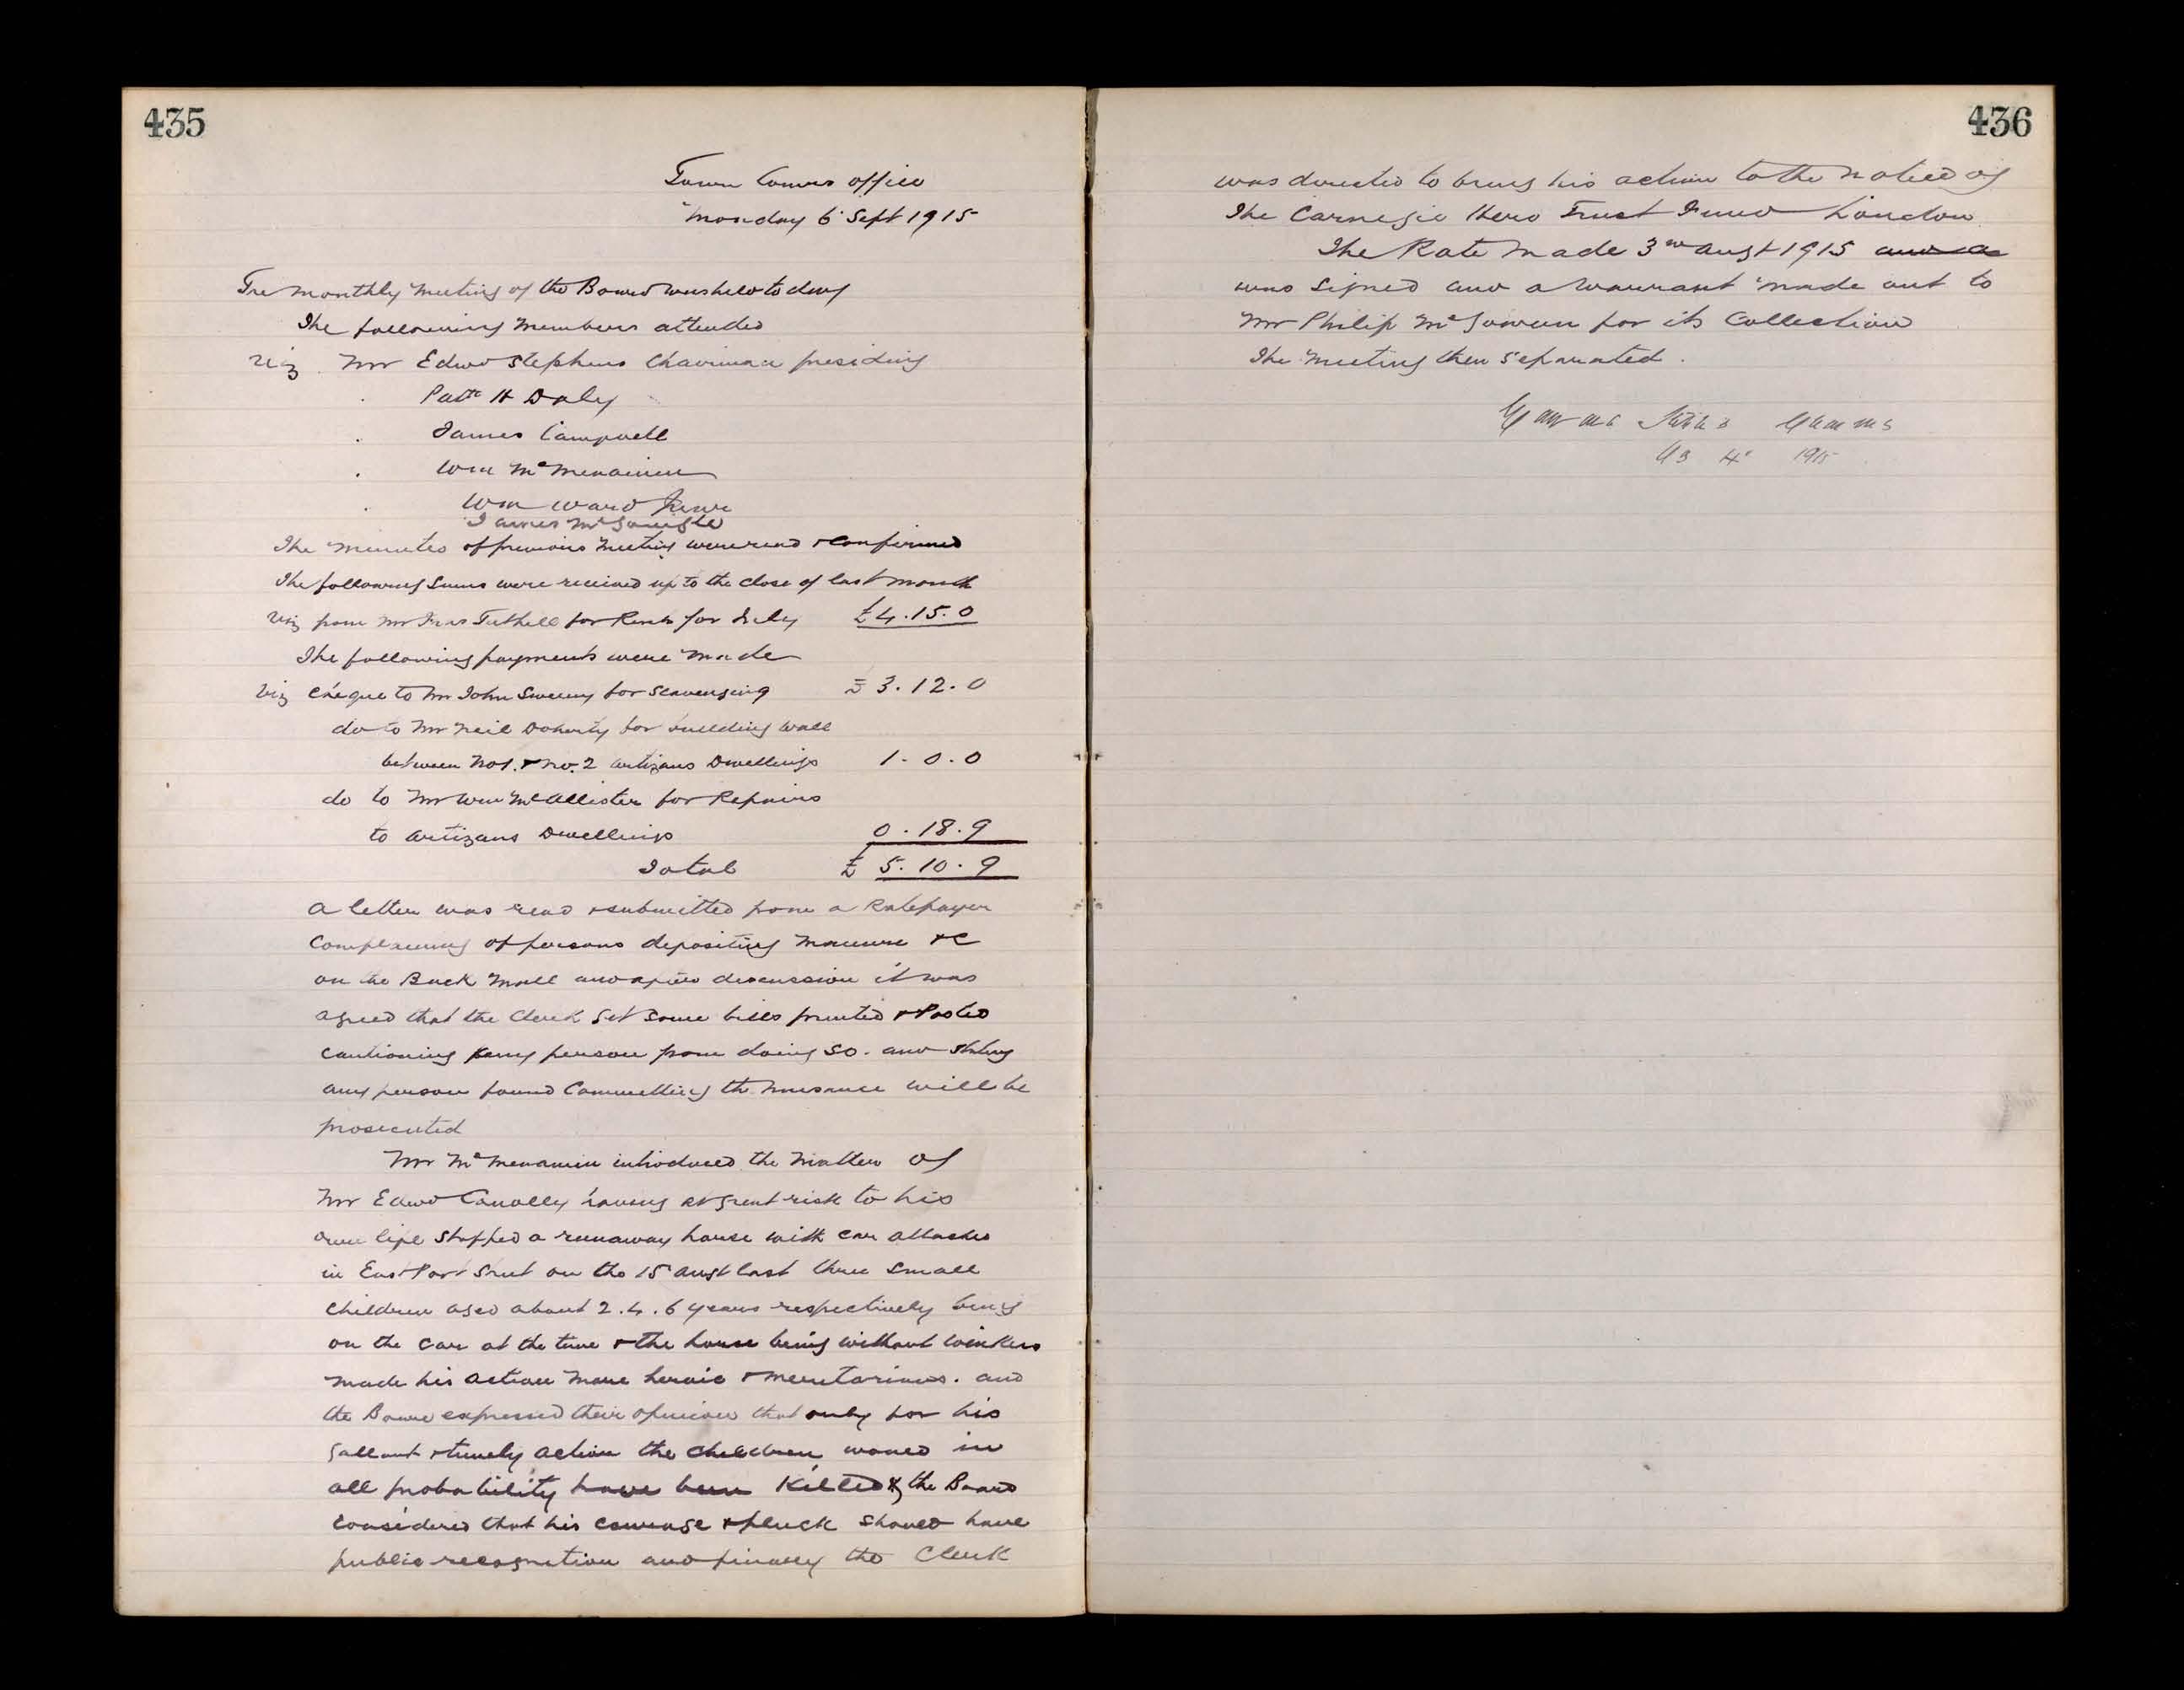 435
Town Comrs office
Monday 6 Sept 1915
The monthly meeting of the Board was held to day
The following members attended
viz Mr Edwd Stephens Chairman presiding
Patk H Daly
James Campbell
Wm McMenamin
Wm Ward Junr
James McGonigle
The minutes of previous meeting were read & confirmed
The following sums were received up to the close of last month
viz from Mr Fras Tuthill for Rents for July £4.15.0
The following payments were made
viz Cheque to Mr John Sweeny for Scavenging £3.12.0
do to Mr Neil Doherty for building wall
between No 1. & No. 2 Artizans Dwellings 1.0.0
do to Mr Wm McAllister for Repairs
to Artizans Dwellings 0.18.9
Total £5.10.9
A letter was read & submitted from a Ratepayer
Complaining of persons depositing manure &c
on the Back Mall and after discussion it was
agreed that the Clerk get some bills printed & Posted
cautioning any person from doing so. and stating
any person found Committing the nuisance will be
prosecuted
Mr McMenamin introduced the matter of
Mr Edwd Conolly having at great risk to his
own life stopped a runaway horse with car attached
in East Port Street on the 15 Augt last three small
children aged about 2.4.6 years respectively being
on the car at the time & the horse being without winkers
made his action more heroic & meritorious. and
the Board expressed their opinion that only for his
gallant & timely action the children would in
all probability have been killed & the Board
considered that his courage & pluck should have
public recognition and finally the Clerk
436
was directed to bring his action to the notice of
The Carnegie Hero Trust Fund London
The Rate made 3rd Augt 1915 and a
was signed and a Warrant made out to
Mr Philip McGowan for its Collection
The meeting then separated.
1915